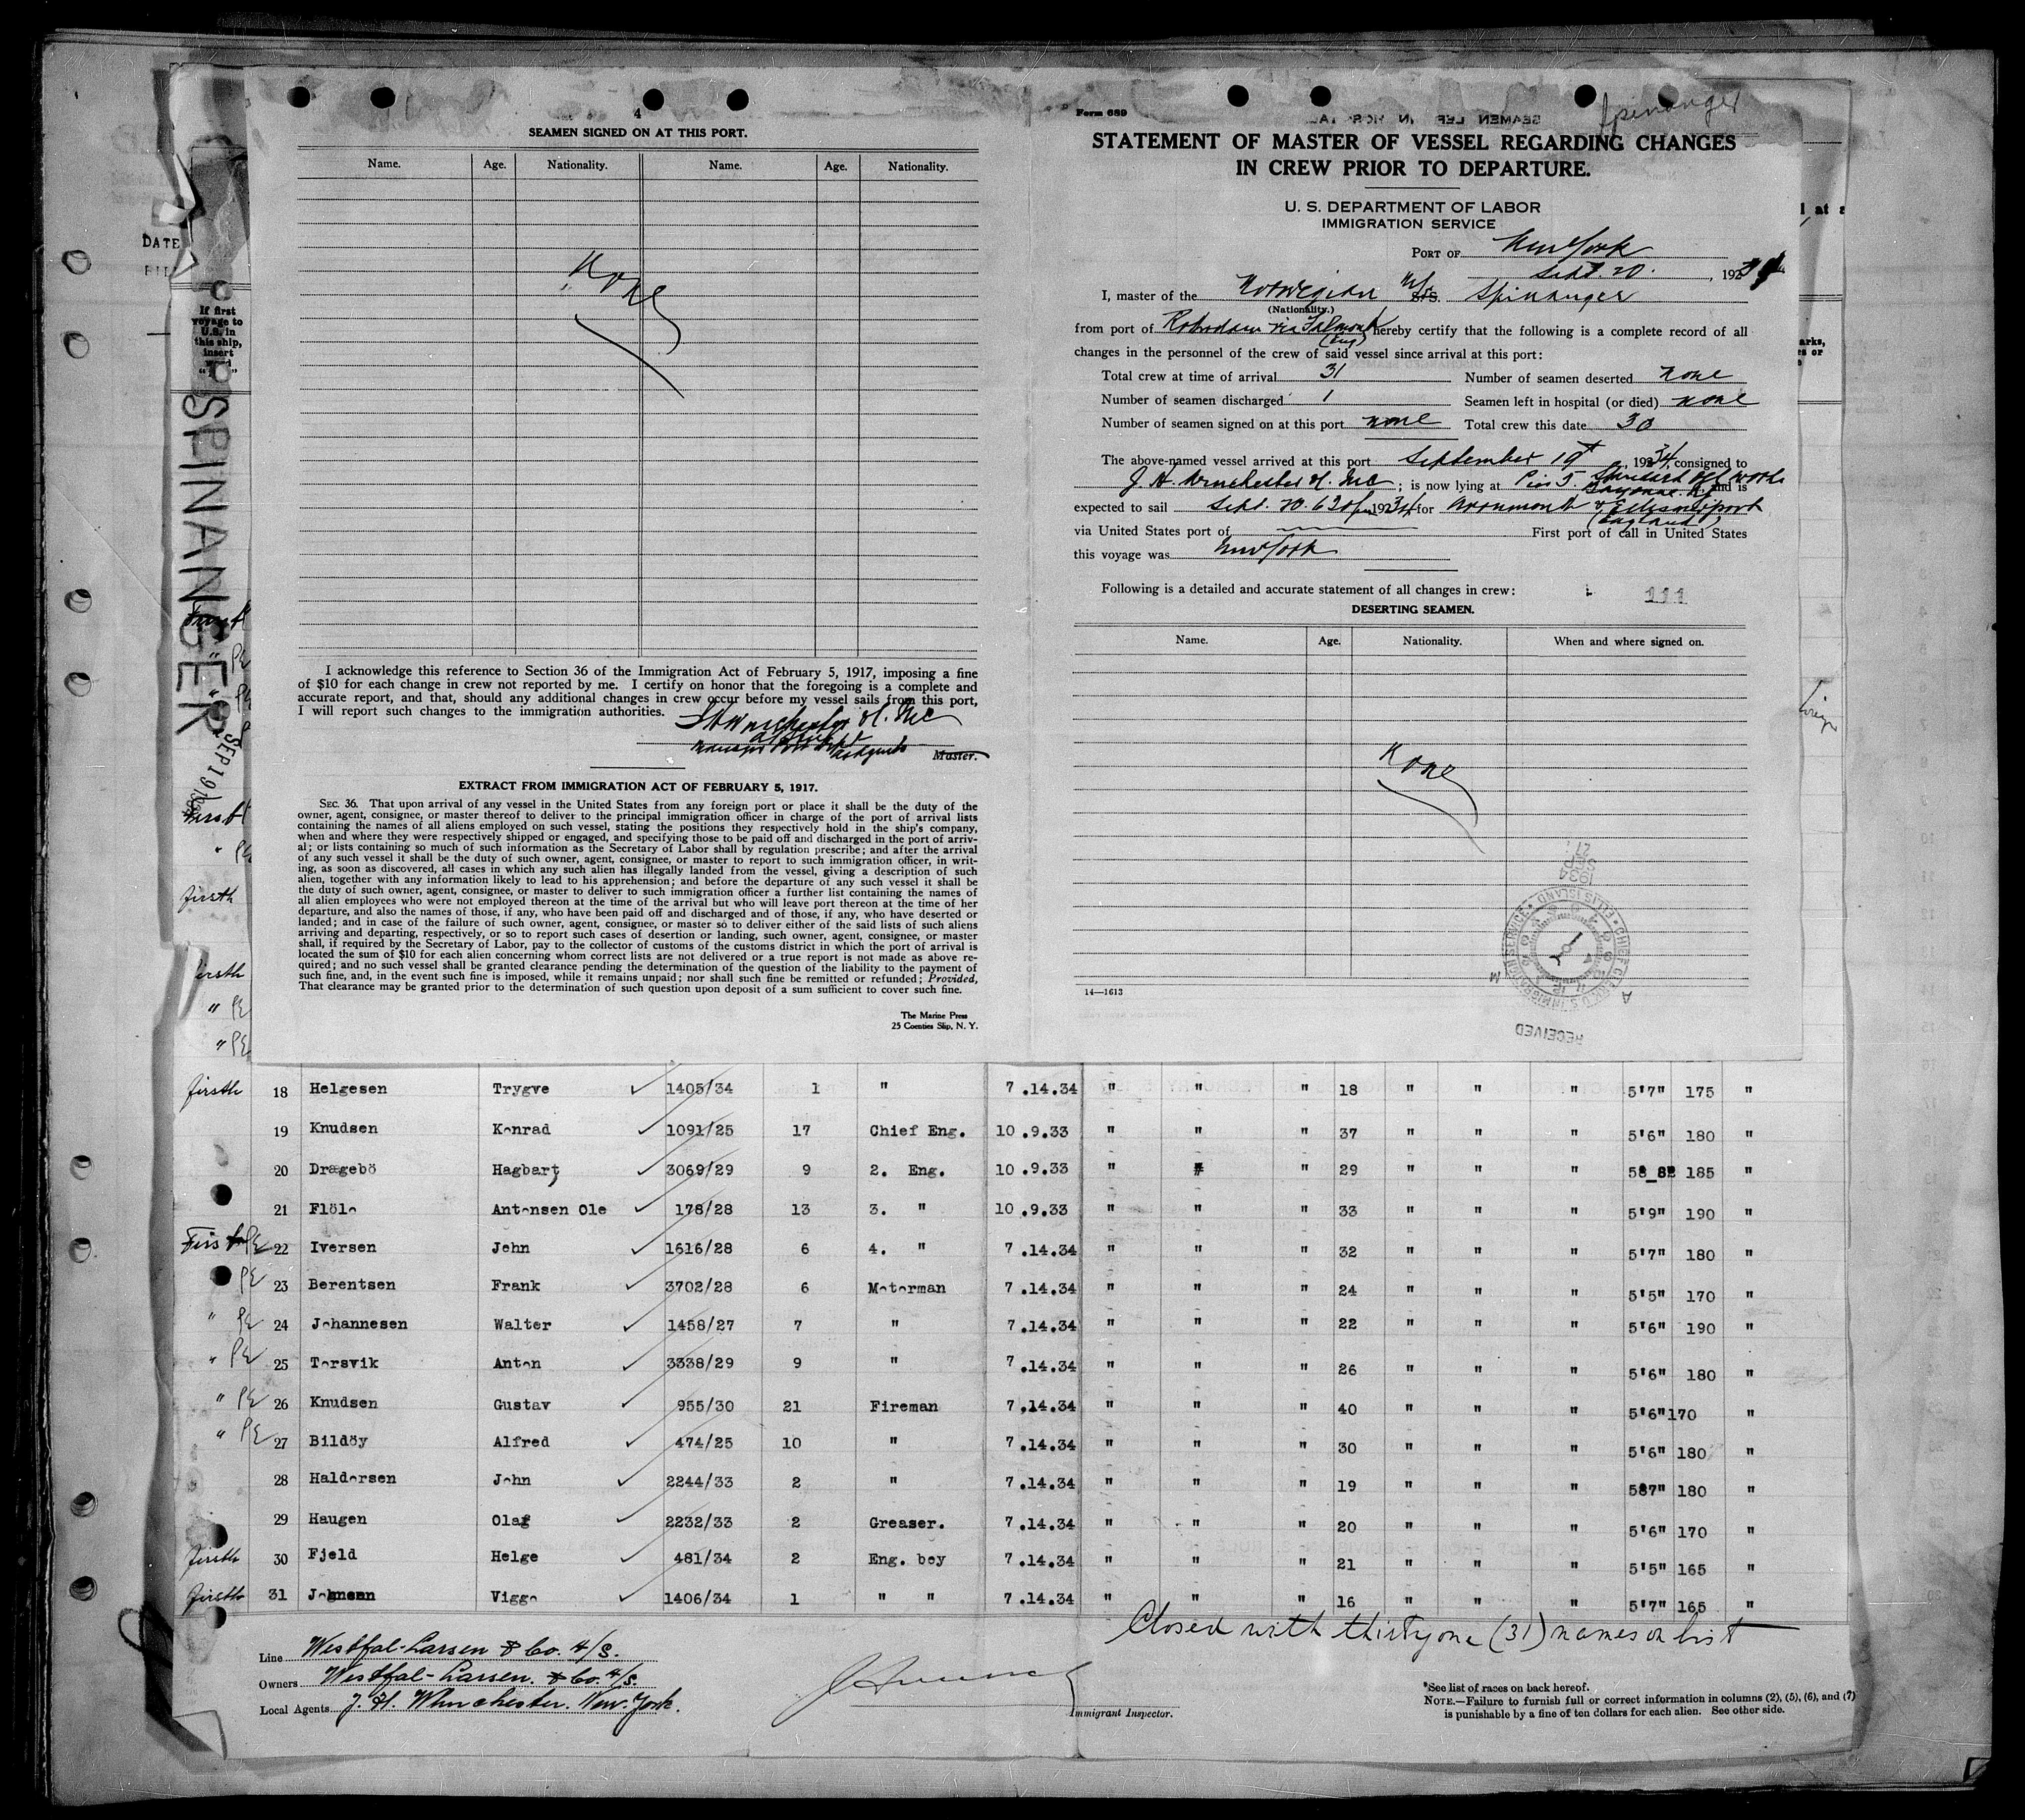 4
SEAMEN SIGNED ON AT THIS PORT.
Name. Age. Nationality. Name. Age. Nationality.
None
I acknowledge this reference to Section 36 of the Immigration Act of February 5, 1917, imposing a fine
of $10 for each change in crew not reported by me. I certify on honor that the foregoing is a complete and
accurate report, and that, should any additional changes in crew occur before my vessel sails from this port,
I will report such changes to the immigration authorities.
J H Winchester & Co. Inc
as Agents
Master.
EXTRACT FROM IMMIGRATION ACT OF FEBRUARY 5, 1917.
SEC. 36. That upon arrival of any vessel in the United States from any foreign port or place it shall be the duty of the
owner, agent, consignee, or master thereof to deliver to the principal immigration officer in charge of the port of arrival lists
containing the names of all aliens employed on such vessel, stating the positions they respectively hold in the ship's company,
when and where they were respectively shipped or engaged, and specifying those to be paid off and discharged in the port of arriv-
al; or lists containing so much of such information as the Secretary of Labor shall by regulation prescribe; and after the arrival
of any such vessel it shall be the duty of such owner, agent, consignee, or master to report to such immigration officer, in writ-
ing, as soon as discovered, all cases in which any such alien has illegally landed from the vessel, giving a description of such
alien, together with any information likely to lead to his apprehension; and before the departure of any such vessel it shall be
the duty of such owner, agent, consignee, or master to deliver to such immigration officer a further list containing the names of
all alien employees who were not employed thereon at the time of the arrival but who will leave port thereon at the time of her
departure, and also the names of those, if any, who have been paid off and discharged and of those, if any, who have deserted or
landed; and in case of the failure of such owner, agent, consignee, or master so to deliver either of the said lists of such aliens
arriving and departing, respectively, or so to report such cases of desertion or landing, such owner, agent, consignee, or master
shall, if required by the Secretary of Labor, pay to the collector of customs of the customs district in which the port of arrival is
located the sum of $10 for each alien concerning whom correct lists are not delivered or a true report is not made as above re-
quired; and no such vessel shall be granted clearance pending the determination of the question of the liability to the payment of
such fine, and, in the event such fine is imposed, while it remains unpaid; nor shall such fine be remitted or refunded; Provided,
That clearance may be granted prior to the determination of such question upon deposit of a sum sufficient to cover such fine.
The Marine Press
25 Coenties Slip, N. Y.
Form 689
Spinanger
STATEMENT OF MASTER OF VESSEL REGARDING CHANGES
IN CREW PRIOR TO DEPARTURE.
U. S. DEPARTMENT OF LABOR
IMMIGRATION SERVICE
PORT OF New York
Sept. 20. , 1934
I, master of the Norwegian M/S S.S. Spinanger
(Nationality.)
from port of Rotterdam via Falmouth hereby certify that the following is a complete record of all
(Eng)
changes in the personnel of the crew of said vessel since arrival at this port:
Total crew at time of arrival 31 Number of seamen deserted none
Number of seamen discharged 1 Seamen left in hospital (or died) none
Number of seamen signed on at this port none Total crew this date 30
The above-named vessel arrived at this port September 19th, 1934, consigned to
J. H. Winchester & Co. Inc ; is now lying at Pier 5 Standard Oil Works Bayonne NJ and is
expected to sail Sept. 20. 6 30 pm 1934 for Avonmouth & Ellesmereport
(England)
via United States port of First port of call in United States
this voyage was New York
Following is a detailed and accurate statement of all changes in crew:
111
DESERTING SEAMEN.
Name. Age. Nationality. When and where signed on.
None
14—1613
RECEIVED
CHIEF CLERK U.S. IMMIGRATION SERVICE • ELLIS ISLAND
1934 SEP 21
A M
DATE
If first
voyage to
U.S. in
this ship,
insert
word
SPINANGER
SEP 19 1934
firsth 18 Helgesen Trygve 1405/34 1 " 7.14.34 " " " 18 " " " 5'7" 175 "
19 Knudsen Konrad 1091/25 17 Chief Eng. 10.9.33 " " " 37 " " " 5'6" 180 "
20 Drægebö Hagbart 3069/29 9 2. Eng. 10.9.33 " " " 29 " " " 185 "
21 Flölo Antonsen Ole 178/28 13 3. " 10.9.33 " " " 33 " " " 5'9" 190 "
First PE 22 Iversen John 1616/28 6 4. " 7.14.34 " " " 32 " " " 5'7" 180 "
PE 23 Berentsen Frank 3702/28 6 Motorman 7.14.34 " " " 24 " " " 5'5" 170 "
" PE 24 Johannesen Walter 1458/27 7 " 7.14.34 " " " 22 " " " 5'6" 190 "
" PE 25 Torsvik Anton 3338/29 9 " 7.14.34 " " " 26 " " " 5'6" 180 "
" PE 26 Knudsen Gustav 955/30 21 Fireman 7.14.34 " " " 40 " " " 5'6" 170 "
" PE 27 Bildöy Alfred 474/25 10 " 7.14.34 " " " 30 " " " 5'6" 180 "
28 Haldorsen John 2244/33 2 " 7.14.34 " " " 19 " " " 5'7" 180 "
29 Haugen Olaf 2232/33 2 Greaser. 7.14.34 " " " 20 " " " 5'6" 170 "
firsth 30 Fjeld Helge 481/34 2 Eng. boy 7.14.34 " " " 21 " " " 5'5" 165 "
firsth 31 Viggo 1406/34 1 " " 7.14.34 " " " 16 " " " 5'7" 165 "
Closed with thirtyone (31) names on list
Line Westfal-Larsen & Co. A/S.
Owners Westfal-Larsen. & Co. A/S.
Local Agents J. H. Winchester. New. York.
Immigrant Inspector.
*See list of races on back hereof.
NOTE.—Failure to furnish full or correct information in columns (2), (5), (6), and (7)
is punishable by a fine of ten dollars for each alien. See other side.